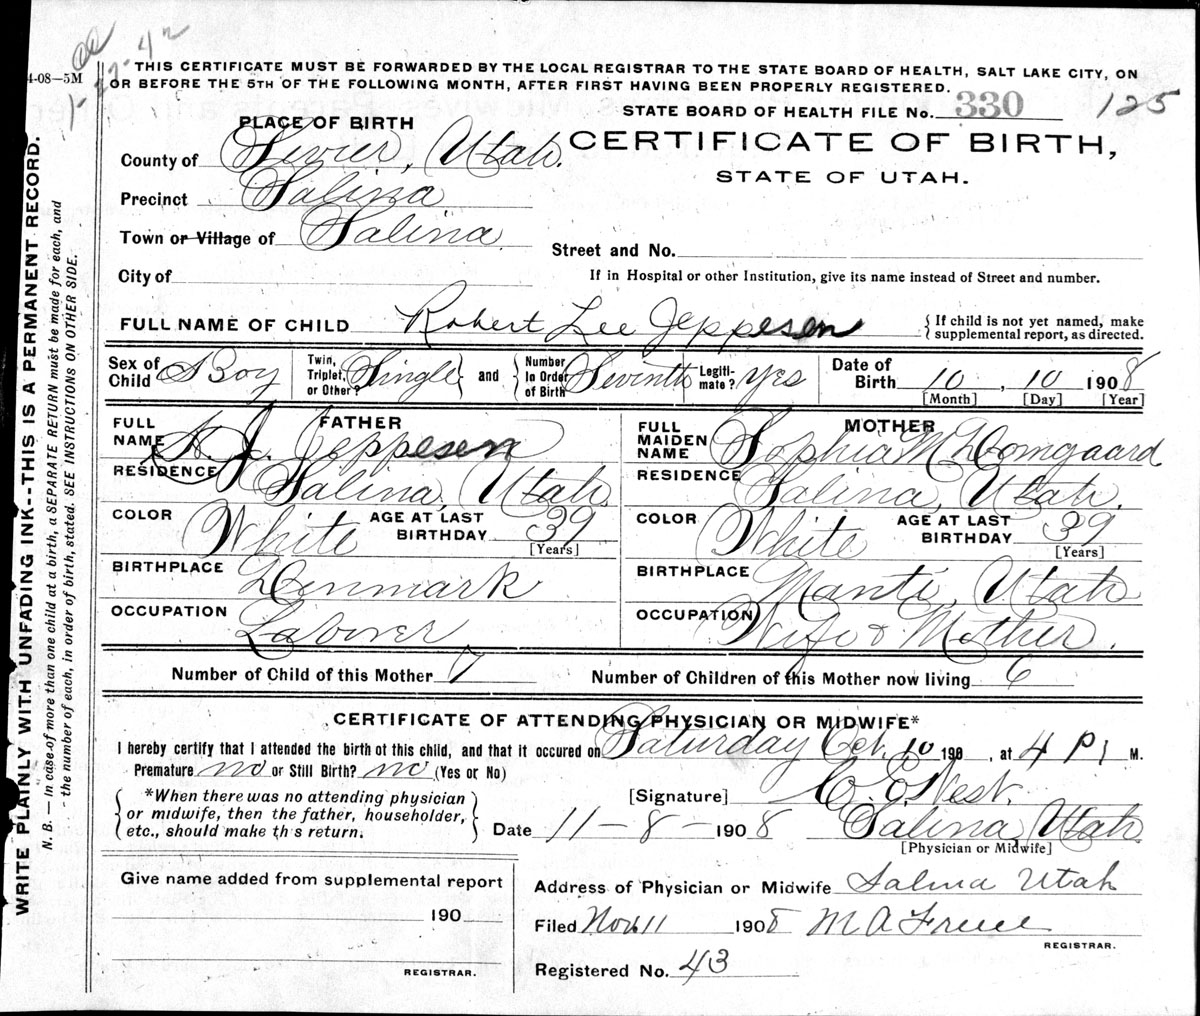 4-08—5M
1-27-42
THIS CERTIFICATE MUST BE FORWARDED BY THE LOCAL REGISTRAR TO THE STATE BOARD OF HEALTH, SALT LAKE CITY, ON
OR BEFORE THE 5TH OF THE FOLLOWING MONTH, AFTER FIRST HAVING BEEN PROPERLY REGISTERED.
STATE BOARD OF HEALTH FILE No. 330 125
PLACE OF BIRTH
CERTIFICATE OF BIRTH,
STATE OF UTAH.
County of Sevier, Utah.
Precinct Salina
Town or Village of Salina
Street and No.
City of
If in Hospital or other Institution, give its name instead of Street and number.
FULL NAME OF CHILD Robert Lee Jeppesen {If child is not yet named, make supplemental report, as directed.
Sex of Child Boy Twin, Triplet, or Other? Single } and { Number In Order of Birth Seventh Legiti-mate? Yes Date of Birth 10, 10 1908
[Month] [Day] [Year]
FATHER
FULL NAME Jeppesen
RESIDENCE Salina, Utah
COLOR White AGE AT LAST BIRTHDAY 39
[Years]
BIRTHPLACE Denmark
OCCUPATION Laborer
MOTHER
FULL MAIDEN NAME Sophia M Domgaard
RESIDENCE Salina, Utah.
COLOR White AGE AT LAST BIRTHDAY 39
[Years]
BIRTHPLACE Manti, Utah
OCCUPATION Wife & Mother.
Number of Child of this Mother 7 Number of Children of this Mother now living 6
CERTIFICATE OF ATTENDING PHYSICIAN OR MIDWIFE*
I hereby certify that I attended the birth of this child, and that it occured on Saturday Oct, 10 190 , at 4 P M.
Premature no or Still Birth? no (Yes or No)
{ *When there was no attending physician
or midwife, then the father, householder,
etc., should make this return. }
[Signature] C. E. West.
Date 11-8-1908 Salina, Utah
[Physician or Midwife]
Give name added from supplemental report
190
REGISTRAR.
Address of Physician or Midwife Salina Utah
Filed Nov 11 1908 M A
REGISTRAR.
Registered No. 43
WRITE PLAINLY WITH UNFADING INK--THIS IS A PERMANENT RECORD.
N. B. — In case of more than one child at a birth, a SEPARATE RETURN must be made for each, and
the number of each, in order of birth, stated. SEE INSTRUCTIONS ON OTHER SIDE.